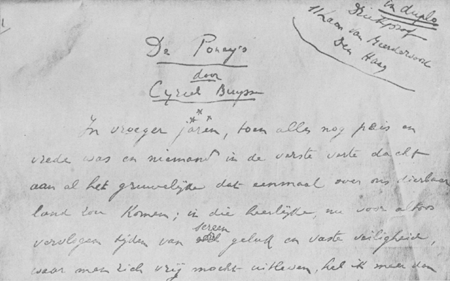 in duplo
Drukproef
Laan van Meerdervoort
Den Haag
De Poney's
door
Cyriel Buysse
***
In vroeger jaren, toen alles nog peis en
vrede was en niemand in de verste verte dacht
aan al het gruwelijke dat eenmaal over ons dierbaar
land zou komen; in die heerlijke, nu voor altoos
vervlogen tijden van sereen geluk en vaste veiligheid,
waar men zich vrij mocht uitleven, heb ik meer dan